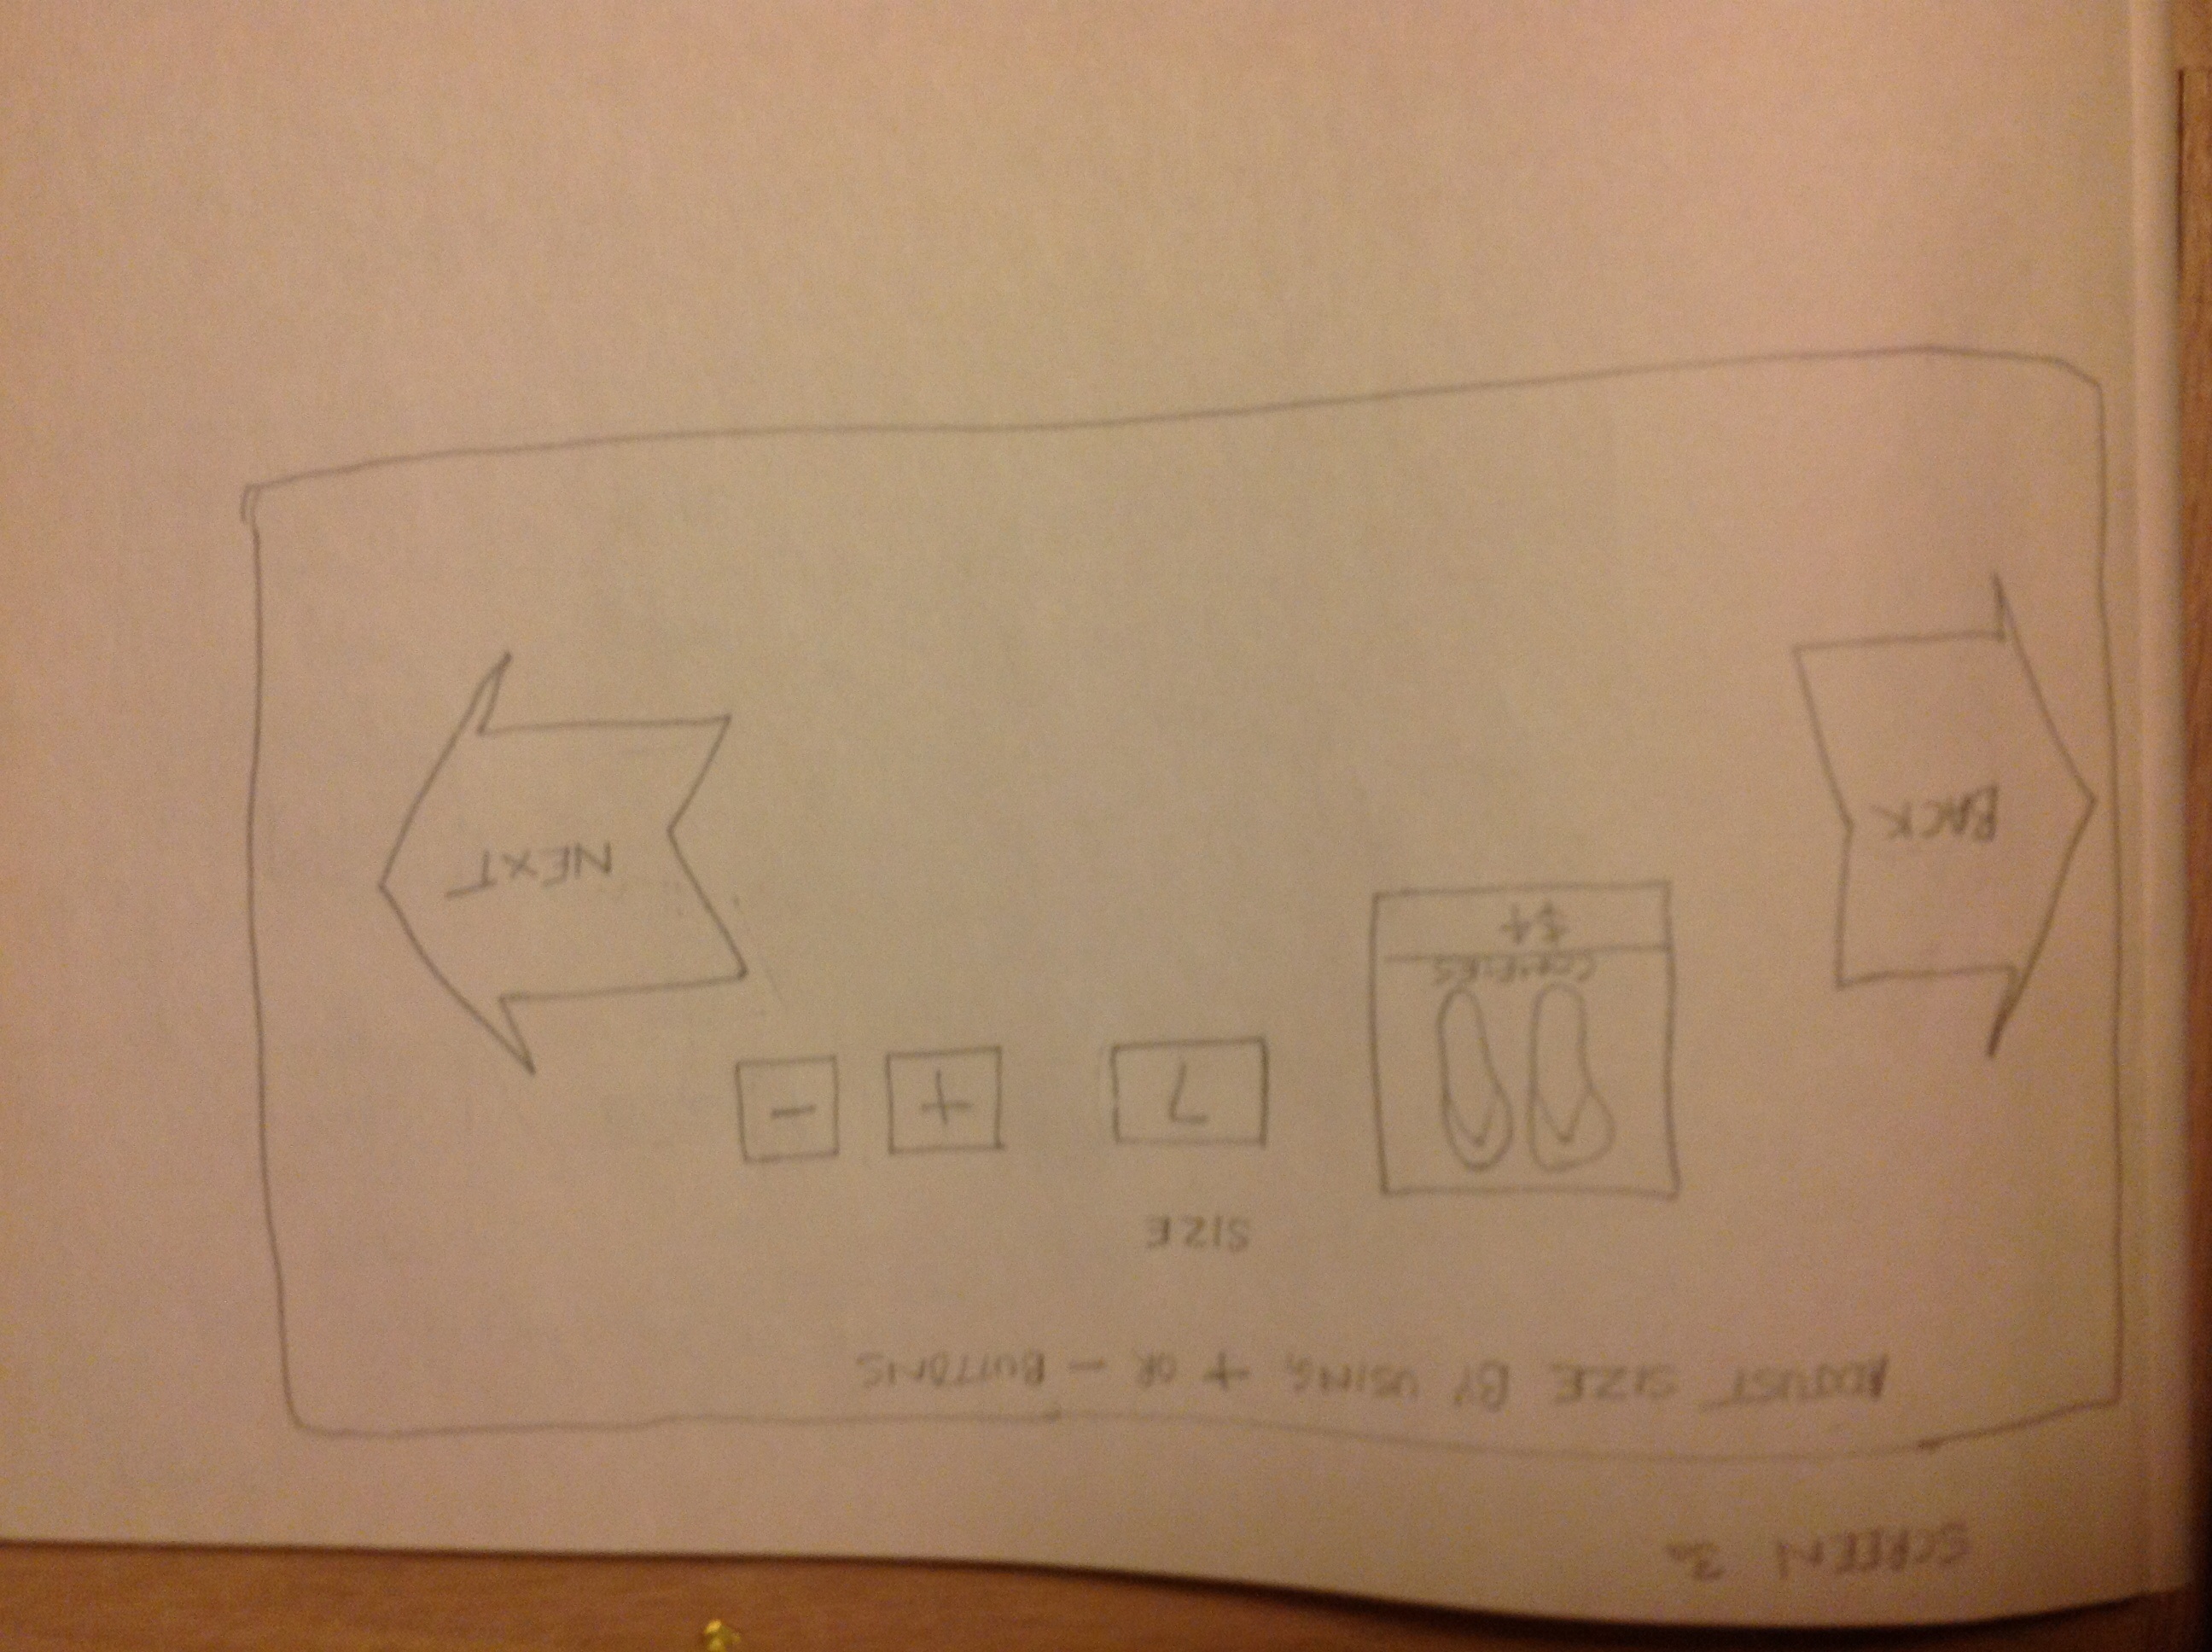 SCREEN 3a
ADJUST SIZE BY USING + OR - BUTTONS
SIZE
7
+
-
COMFIES
$4
BACK
NEXT